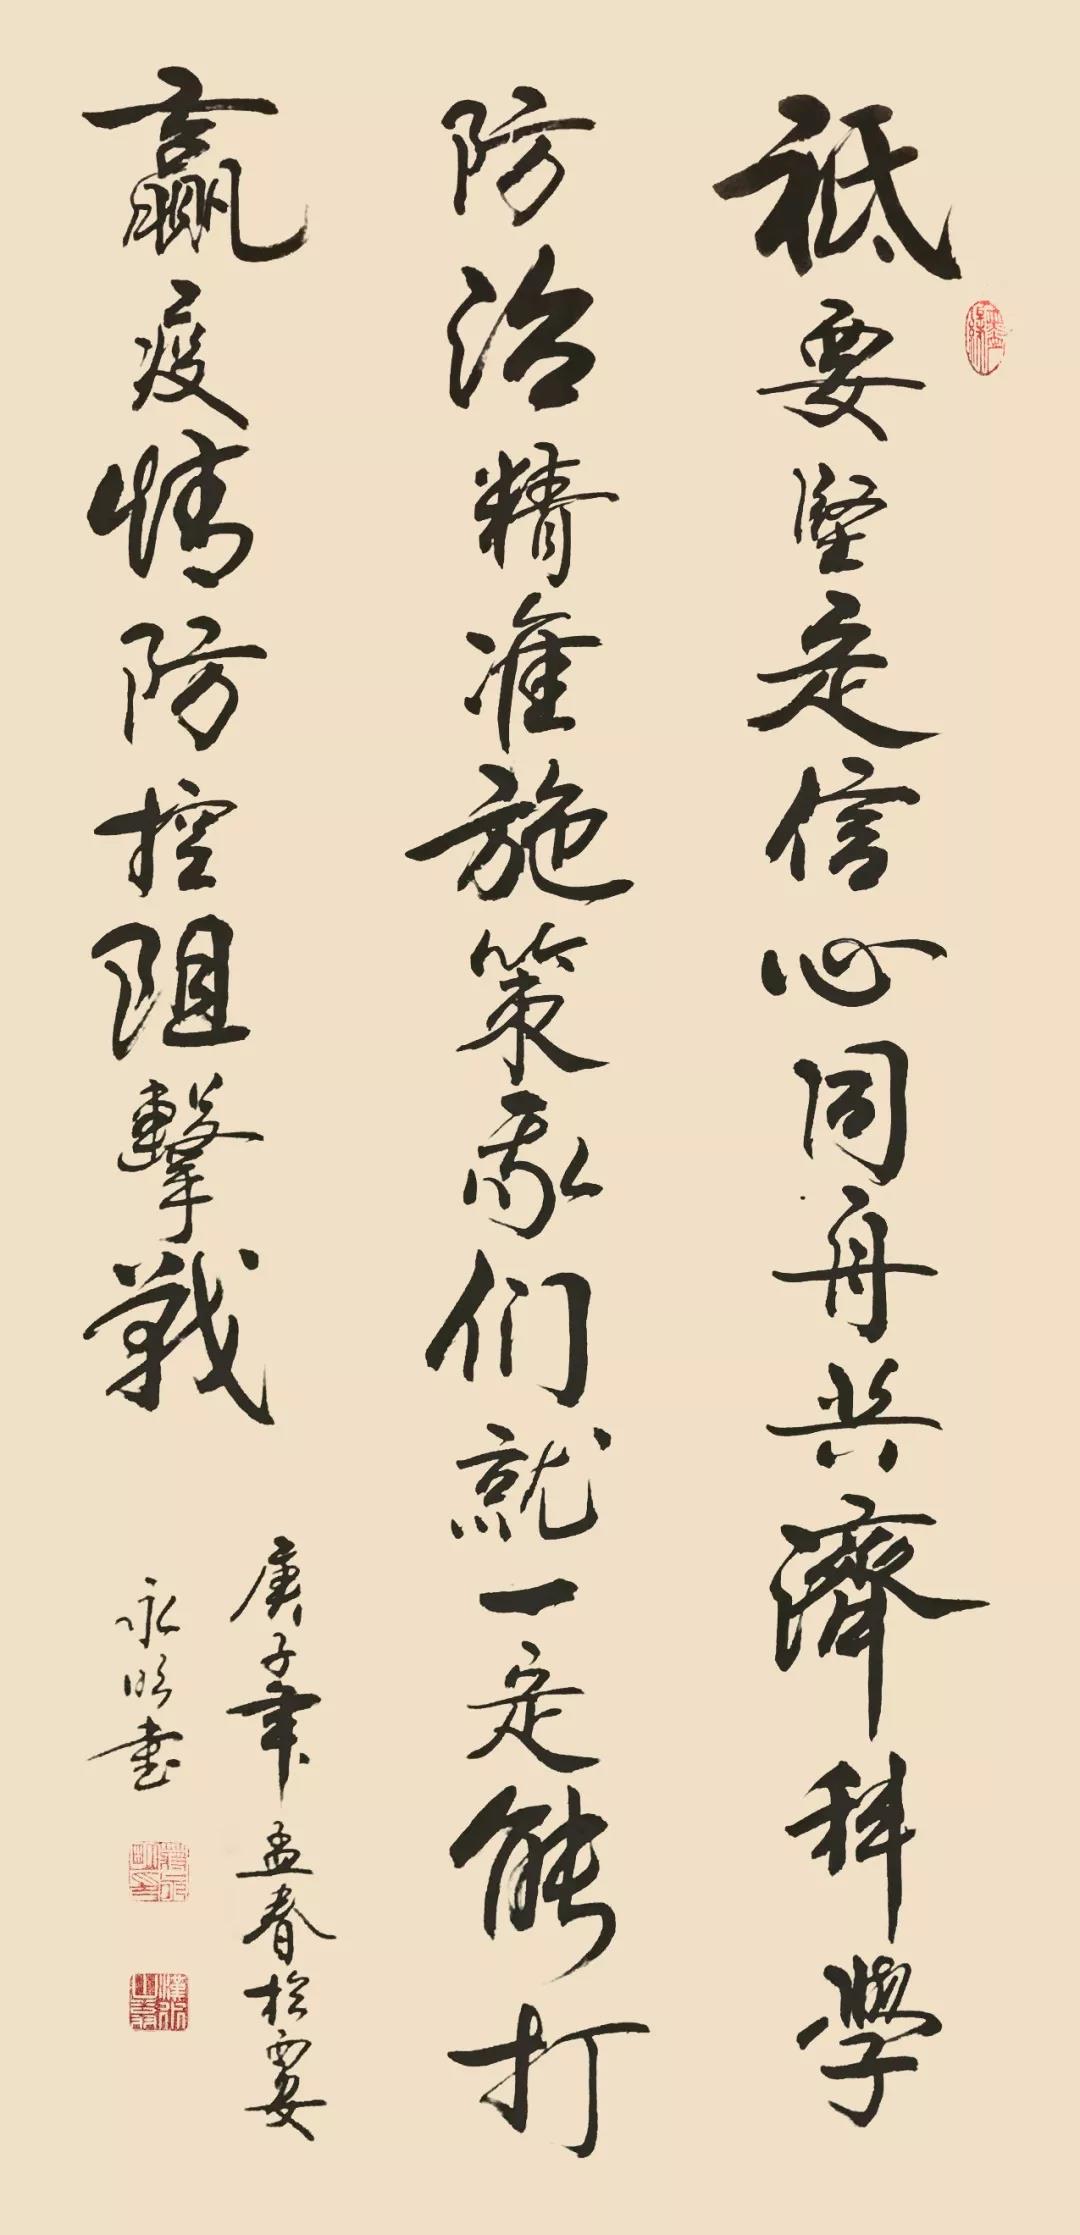 祗要坚定信心同舟共濟科學
防治精准施策我们就一定能打
赢疫情防控阻擊戰
庚子年孟春於
永明書